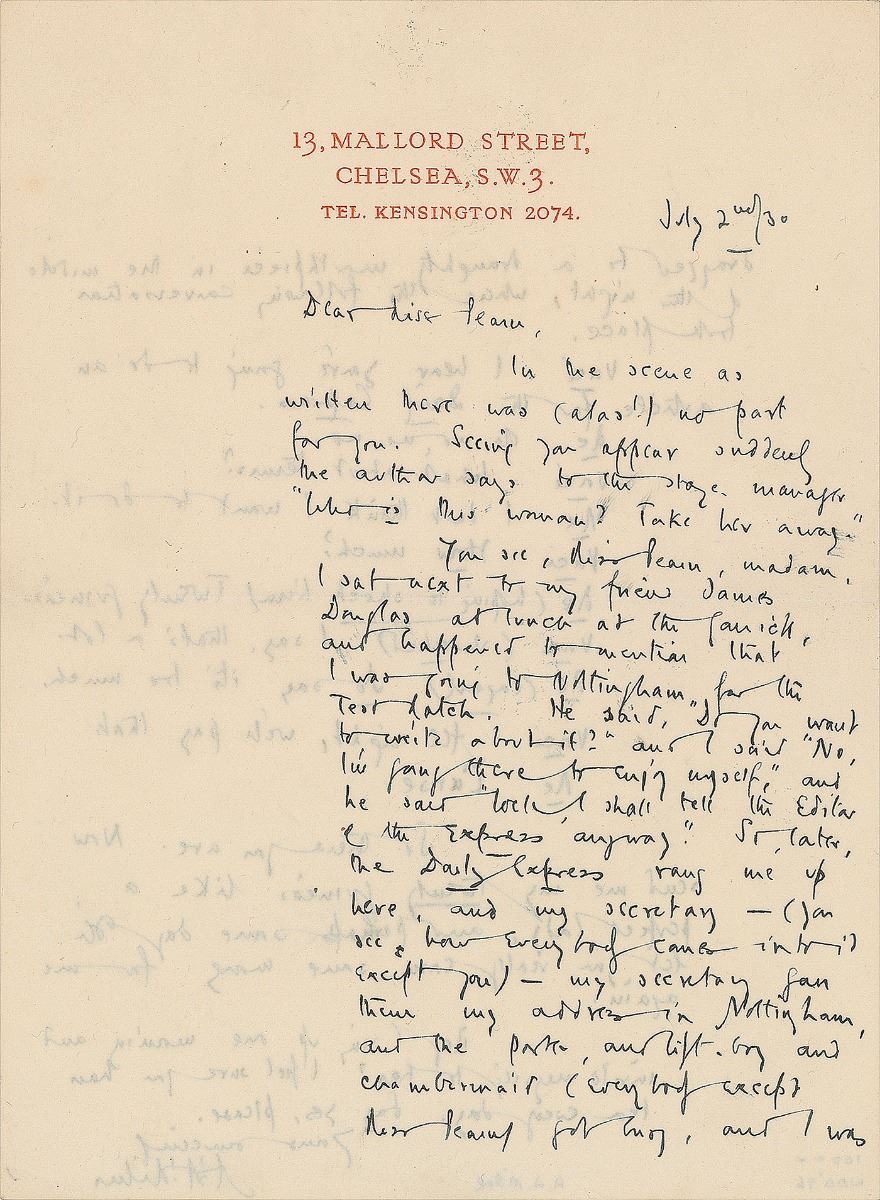 13, MALLORD STREET,
CHELSEA, S.W.3.
TEL. KENSINGTON 2074.
July 2nd/30
Dear Miss Pearn,
In the scene as
written there was (alas!) no part
for you. Seeing you appear suddenly
the author says to the stage manager
"Who is this woman? Take her away."
You see, Miss Pearn, madam,
I sat next to my friend James
Douglas at lunch at the Garrick,
and happened to mention that
I was going to Nottingham for the
Test Match. He said, "Do you want
to write about it?" and I said "No,
I'm going there to enjoy myself," and
he said "Well, I shall tell the Editor
of the Express anyway." So, later,
the Daily Express rang me up
here, and my secretary — (You
see how everybody comes into it
except you) — my secretary gave
them my address in Nottingham,
and the porter, and lift-boy and
chambermaid (everybody except
Miss Pearn) got busy, and I was